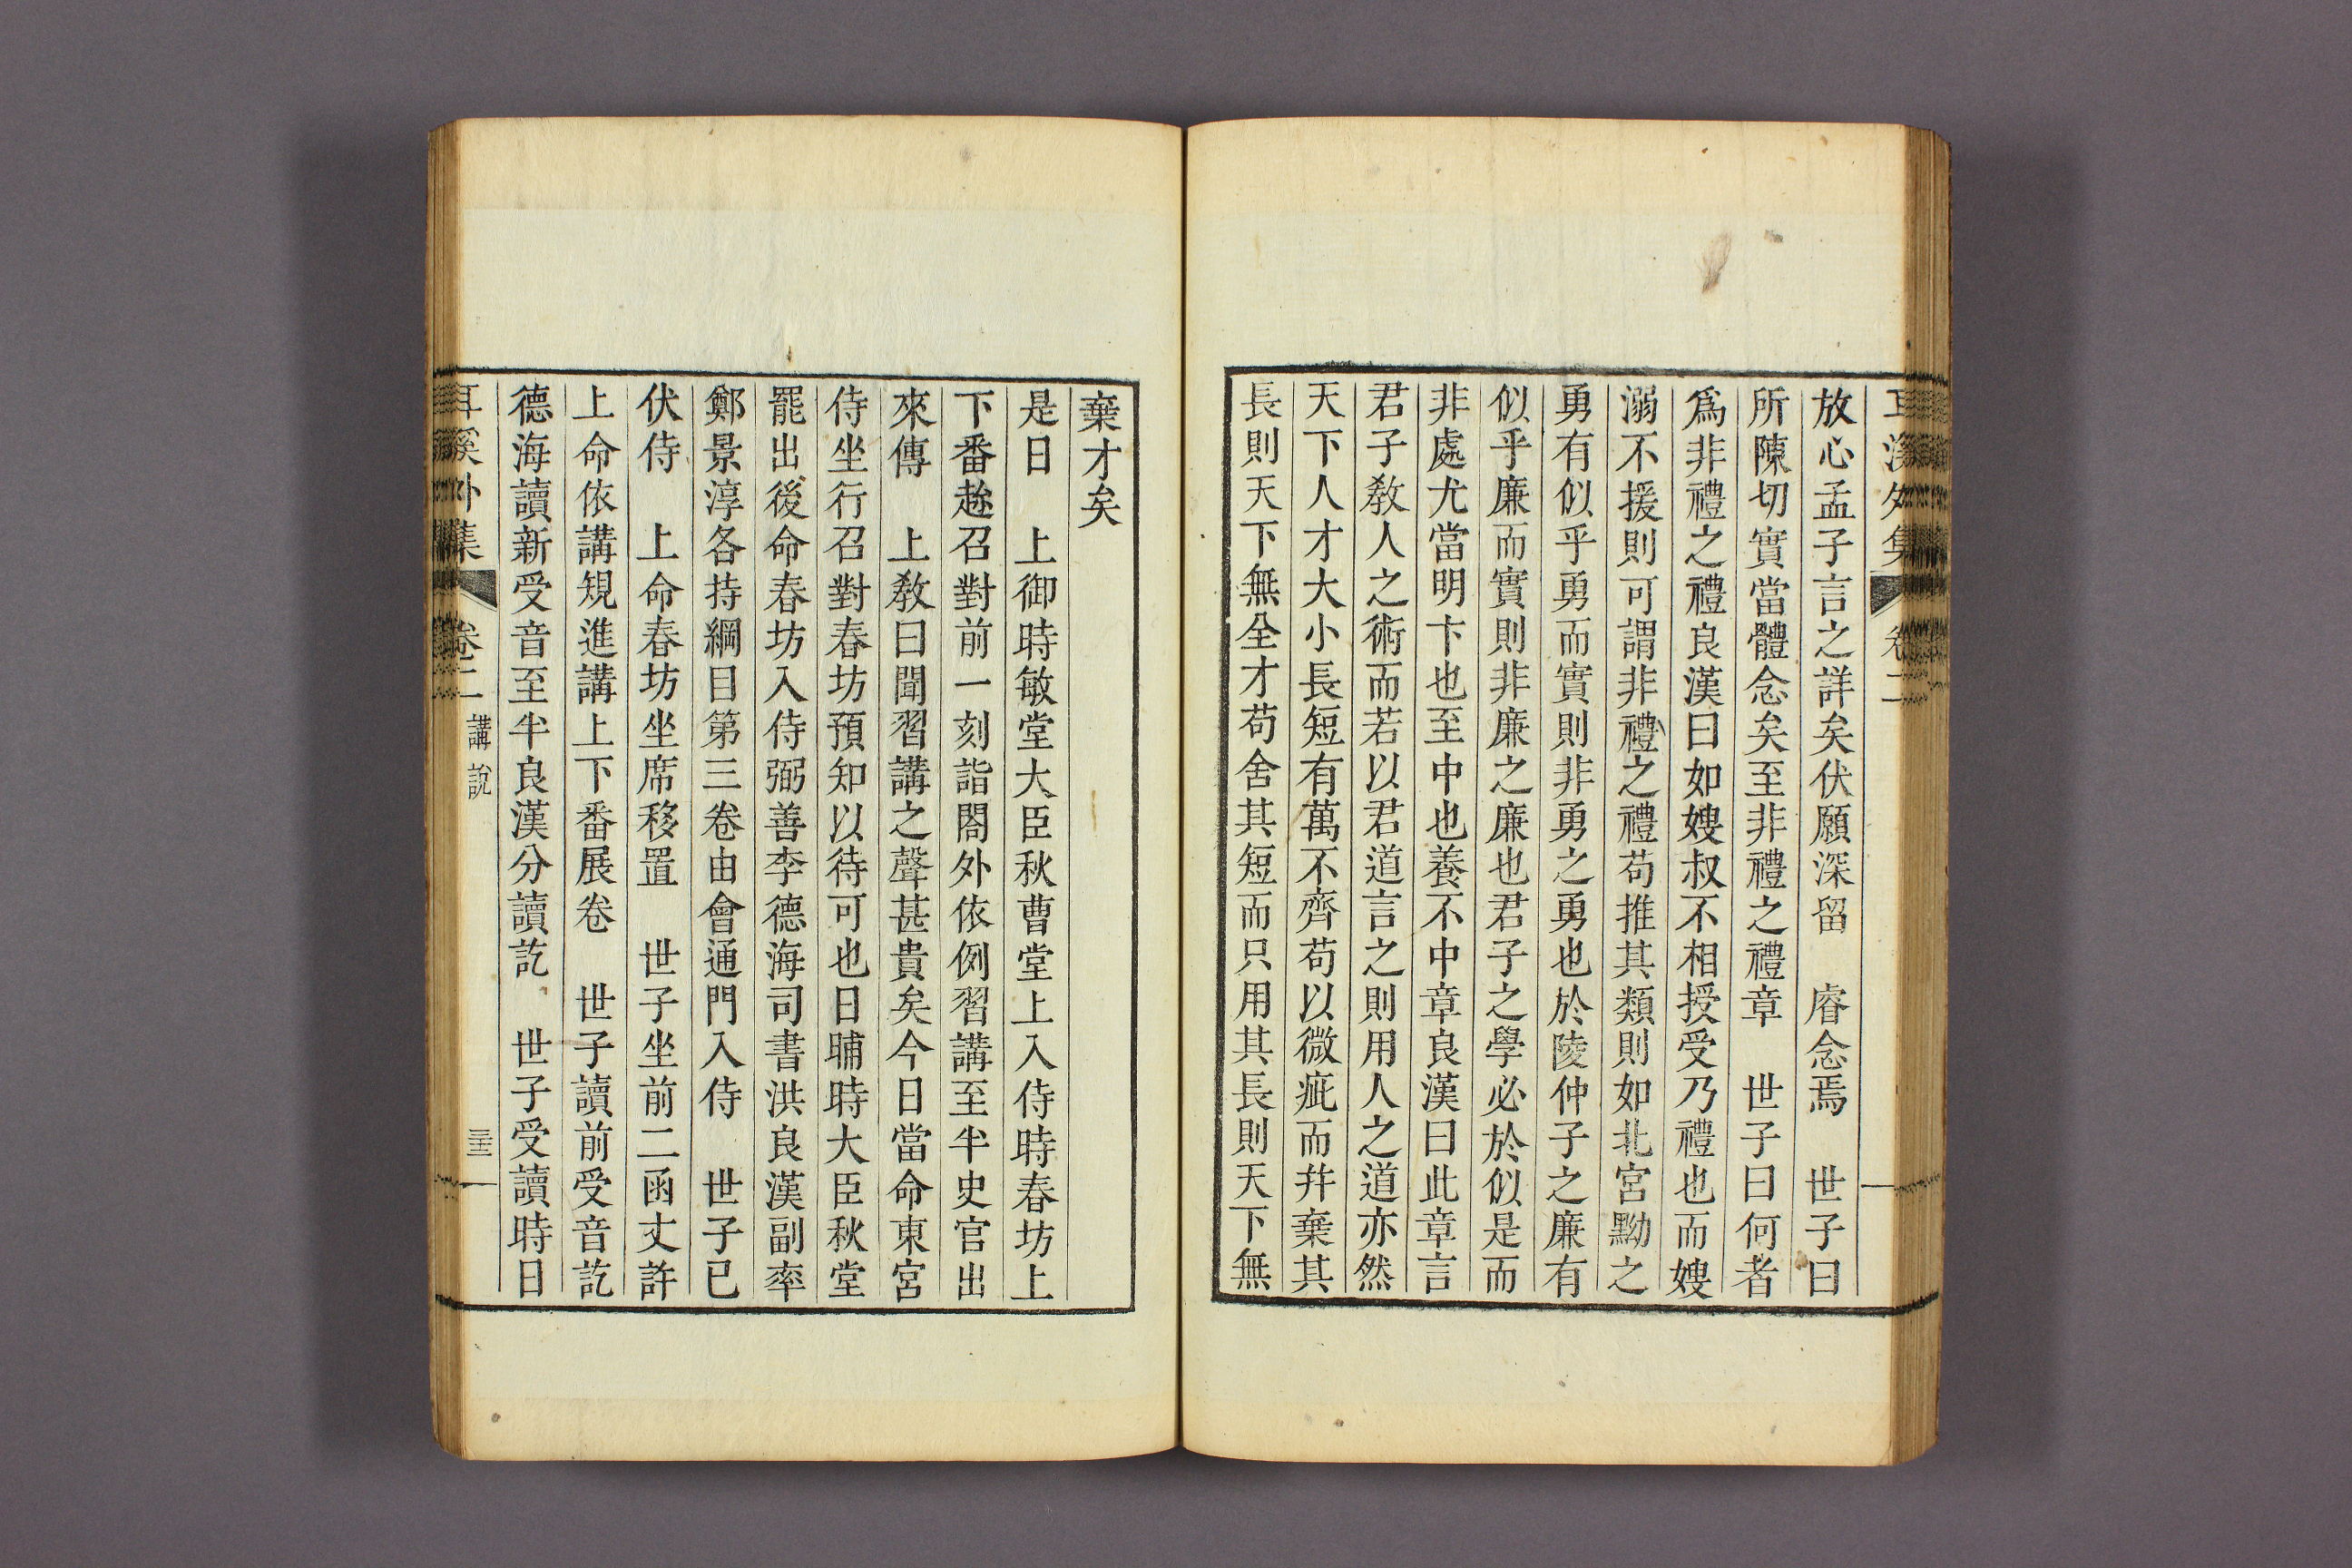 耳溪外集 卷二
放心孟子言之詳矣伏願深留 睿念焉 世子曰
所陳切實當體念矣至非禮之禮章 世子曰何者
爲非禮之禮良漢曰如嫂叔不相授受乃禮也而嫂
溺不援則可謂非禮之禮苟推其類則如北宮黝之
勇有似乎勇而實則非勇之勇也於陵仲子之廉有
似乎廉而實則非廉之廉也君子之學必於似是而
非處尤當明卞也至中也養不中章良漢曰此章言
君子敎人之術而若以君道言之則用人之道亦然
天下人才大小長短有萬不齊苟以微疵而幷棄其
長則天下無全才苟舍其短而只用其長則天下無
棄才矣
是日 上御時敏堂大臣秋曹堂上入侍時春坊上
下番趂召對前一刻詣閤外依例習講至半史官出
來傳 上敎曰聞習講之聲甚貴矣今日當命東宮
侍坐行召對春坊預知以待可也日晡時大臣秋堂
罷出後命春坊入侍弼善李德海司書洪良漢副率
鄭景淳各持綱目第三卷由會通門入侍 世子已
伏侍 上命春坊坐席移置 世子坐前二函丈許
上命依講規進講上下番展卷 世子讀前受音訖
德海讀新受音至半良漢分讀訖 世子受讀時日
耳溪外集 卷二 講說